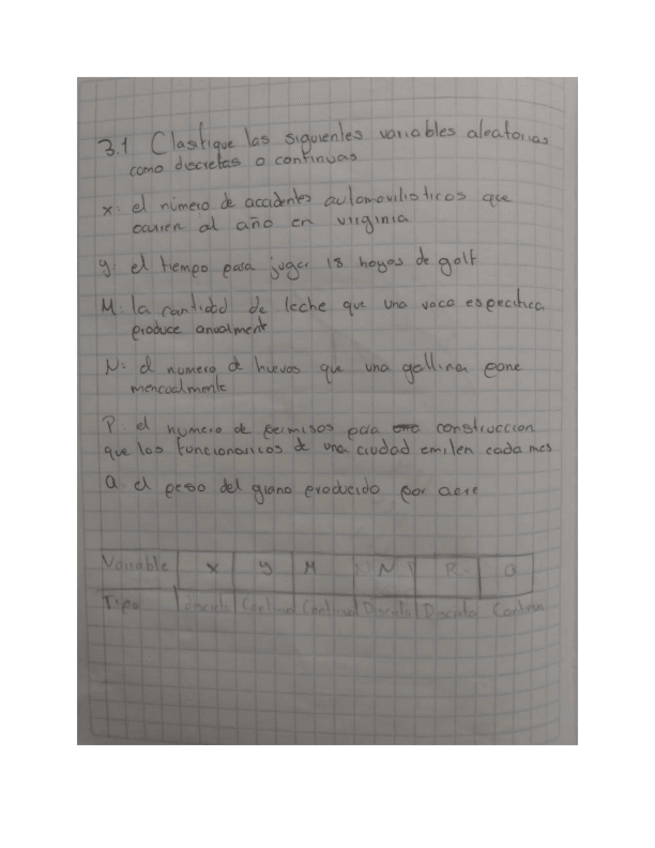 3.1 Clasifique las siguientes variables aleatorias
como discretas o continuas
x: el número de accidentes automovilisticos que
ocurren al año en virginia
y: el tiempo para jugar 18 hoyos de golf
M: la cantidad de leche que una vaca especifica
produce anualmente
N: el numero de huevos que una gallina pone
mencualmente
P: el numero de permisos para construccion
que los funcionarios de una ciudad emiten cada mes
Q el peso del grano producido por acre
Variable x y M N P Q
Tipo Discreta Continua Continua Discreta Discreta Continua